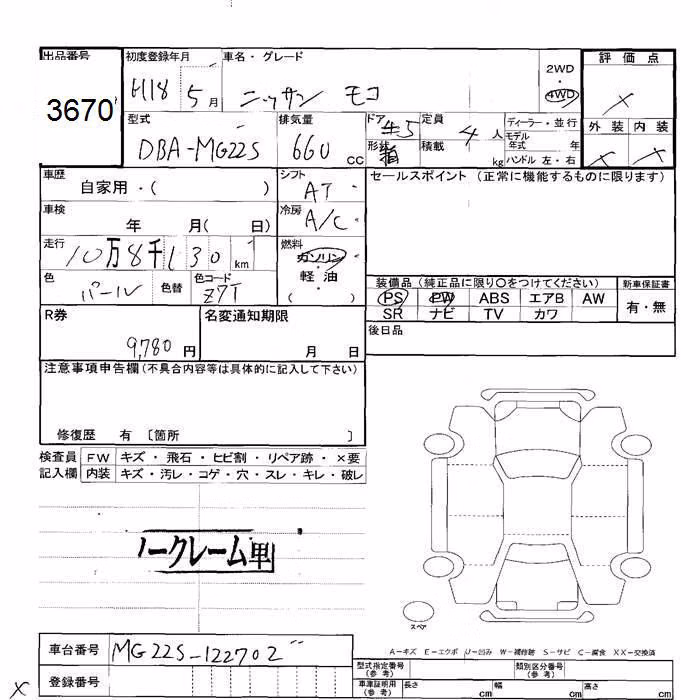 出品番号 初度登録年月 車名・グレード 評価点
3670 H18 5月 ニッサン モコ 2WD・4WD ×
型式 排気量 ドア 定員 ディーラー・並行 外装 内装
DBA-MG22S 660 cc 5 形状 箱 4人 積載 kg モデル年式 年 ハンドル 左・右 × ×
車歴 シフト セールスポイント (正常に機能するものに限ります)
自家用・( ) AT
車検 冷房
年 月( 日) A/C
走行 燃料
10万8千130km ガソリン・軽油・( )
色 色替 色コード 装備品 (純正品に限り○をつけてください) 新車保証書
パール Z7T PS PW ABS エアB AW 有・無
SR ナビ TV カワ
R券 名変通知期限 後日品
9,780円 月 日
注意事項申告欄(不具合内容等は具体的に記入して下さい)
修復歴 有 〔箇所 〕
検査員 FW キズ・飛石・ヒビ割・リペア跡・×要
記入欄 内装 キズ・汚レ・コゲ・穴・スレ・キレ・破レ
ノークレーム
スペア
A-キズ E-エクボ U-凹み W-補修跡 S-サビ C-腐食 XX-交換済
車台番号 MG22S-122702
登録番号
型式指定番号(参考) 類別区分番号(参考)
車庫証明用(参考) 長さ cm 幅 cm 高さ cm
×